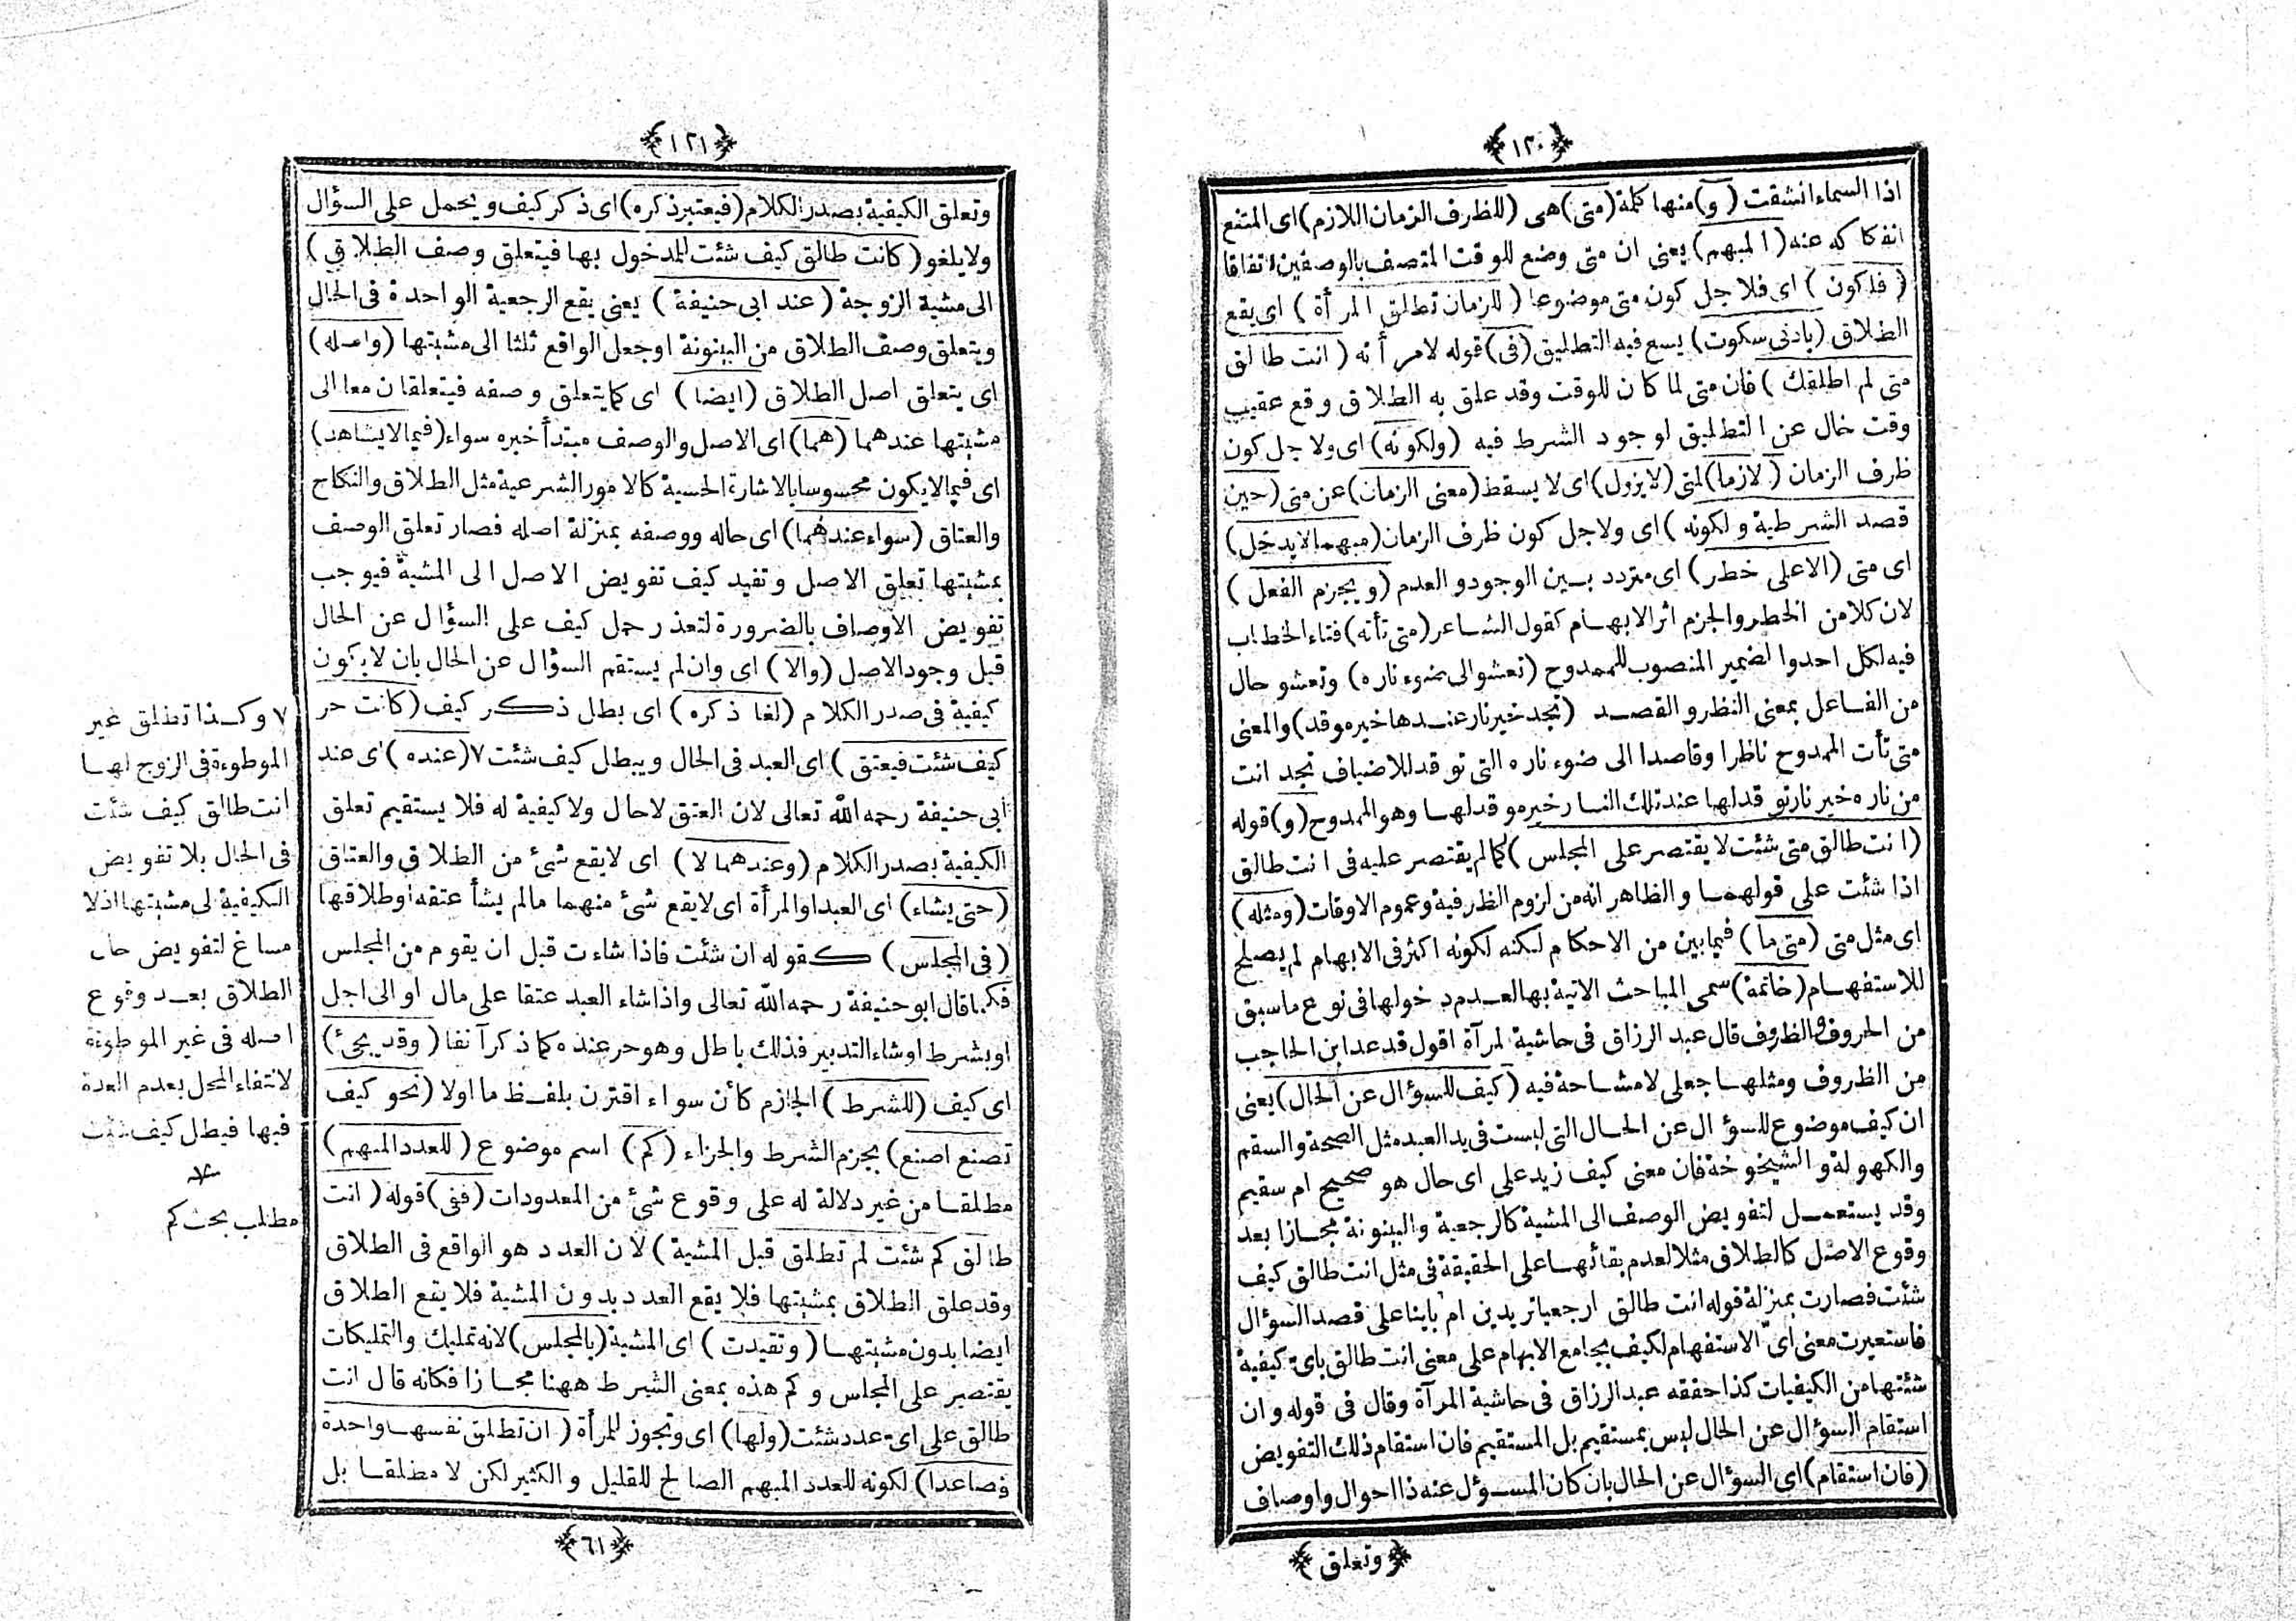 ﴿١٢٠﴾
اذا السماء انشقت (و) منها كلمة (متى) هى (للظرف الزمان اللازم) اى الممتنع
انفكاكه عنه (المبهم) يعنى ان متى وضع للوقت المتصف بالوصفين اتفاقا
(فلكون) اى فلاجل كون متى موضوعا (للزمان تطلق المرأة) اى يقع
الطلاق (بادنى سكوت) يسع فيه التطليق (فى) قوله لامرأته (انت طالق
متى لم اطلقك) فان متى لما كان للوقت وقد علق به الطلاق وقع عقيب
وقت خال عن التطليق لوجود الشرط فيه (ولكونه) اى ولاجل كون
ظرف الزمان (لازما) لمتى (لايزول) اى لا يسقط (معنى الزمان) عن متى (حين
قصد الشرطية ولكونه) اى ولاجل كون ظرف الزمان (مبهما لايدخل)
اى متى (الاعلى خطر) اى متردد بين الوجود والعدم (ويجزم الفعل)
لان كلا من الخطر والجزم اثر الابهام كقول الشاعر (متى تأته) فتاء الخطاب
فيه لكل احد والضمير المنصوب للممدوح (تعشو الى ضوء ناره) وتعشو حال
من الفاعل بمعنى النظر والقصد (تجد خير نار عندها خير موقد) والمعنى
متى تأت الممدوح ناظرا وقاصدا الى ضوء ناره التى توقد للاضياف تجد انت
من ناره خير نار توقد لها عند تلك النار خير موقد لها وهو الممدوح (و) قوله
(انت طالق متى شئت لا يقتصر على المجلس) كما لم يقتصر عليه فى انت طالق
اذا شئت على قولهما والظاهر انه من لزوم الظرفية وعموم الاوقات (ومثله)
اى مثل متى (متى ما) فيما بين من الاحكام لكنه لكونه اكثر فى الابهام لم يصلح
للاستفهام (خاتمة) سمى المباحث الاتية بها لعدم دخولها فى نوع ما سبق
من الحروف والظروف قال عبد الرزاق فى حاشية لمرآة اقول قد عد ابن الحاجب
من الظروف ومثلها جعلى لا مشاحة فيه (كيف للسؤال عن الحال) يعنى
ان كيف موضوع للسؤال عن الحال التى ليست فى يد العبد مثل الصحة والسقم
والكهولة والشيخوخة فان معنى كيف زيد على اى حال هو صحيح ام سقيم
وقد يستعمل لتفويض الوصف الى المشية كالرجعية والبينونة مجازا بعد
وقوع الاصل كالطلاق مثلا لعدم بقائها على الحقيقة فى مثل انت طالق كيف
شئت فصارت بمنزلة قوله انت طالق ارجعيا تريدين ام باينا على قصد السؤال
فاستعيرت معنى اىّ الاستفهام لكيف بجامع الابهام على معنى انت طالق باى كيفية
شئتها من الكيفيات كذا حققه عبد الرزاق فى حاشية المرآة وقال فى قوله وان
استقام السؤال عن الحال ليس بمستقيم بل المستقيم فان استقام ذلك التفويض
(فان استقام) اى السؤال عن الحال بان كان المسؤل عنه ذا احوال واوصاف
﴿وتعلق﴾
﴿١٢١﴾
وتعلق الكيفية بصدر الكلام (فيعتبر ذكره) اى ذكر كيف ويحمل على السؤال
ولا يلغو (كانت طالق كيف شئت للمدخول بها فيتعلق وصف الطلاق)
الى مشية الزوجة (عند ابى حنيفة) يعنى يقع الرجعية الواحدة فى الحال
ويتعلق وصف الطلاق من البينونة اوجعل الواقع ثلثا الى مشيتها (واصله)
اى يتعلق اصل الطلاق (ايضا) اى كما يتعلق وصفه فيتعلقان معا الى
مشيتها عندهما (هما) اى الاصل والوصف مبتدأ خبره سواء (فيما لا يشاهد)
اى فيما لا يكون محسوسا بالاشارة الحسية كالامور الشرعية مثل الطلاق والنكاح
والعتاق (سواء عندهما) اى حاله ووصفه بمنزلة اصله فصار تعلق الوصف
بمشيتها تعلق الاصل وتفيد كيف تفويض الاصل الى المشية فيوجب
تفويض الاوصاف بالضرورة لتعذر حمل كيف على السؤال عن الحال
قبل وجود الاصل (والا) اى وان لم يستقم السؤال عن الحال بان لا يكون
كيفية فى صدر الكلام (لغا ذكره) اى بطل ذكر كيف (كانت حر
كيف شئت فيعتق) اى العبد فى الحال ويبطل كيف شئت ٧ (عنده) اى عند
ابى حنيفة رحمه الله تعالى لان العتق لا حال ولا كيفية له فلا يستقيم تعلق
الكيفية بصدر الكلام (وعندهما لا) اى لا يقع شئ من الطلاق والعتاق
(حتى يشاء) اى العبد او المرأة اى لا يقع شئ منهما ما لم يشأ عتقه او طلاقها
(فى المجلس) كقوله ان شئت فاذا شاءت قبل ان يقوم من المجلس
فكما قال ابو حنيفة رحمه الله تعالى واذا شاء العبد عتقا على مال او الى اجل
او بشرط او شاء التدبير فذلك باطل وهو حر عنده كما ذكر آنفا (وقد يجئ)
اى كيف (للشرط) الجازم كأن سواء اقترن بلفظ ما اولا (نحو كيف
تصنع اصنع) بجزم الشرط والجزاء (كم) اسم موضوع (للعدد المبهم)
مطلقا من غير دلالة له على وقوع شئ من المعدودات (ففى) قوله (انت
طالق كم شئت لم تطلق قبل المشية) لان العدد هو الواقع فى الطلاق
وقد علق الطلاق بمشيتها فلا يقع العدد بدون المشية فلا يقع الطلاق
ايضا بدون مشيتها (وتقيدت) اى المشية (بالمجلس) لانه تمليك والتمليكات
يقتصر على المجلس وكم هذه بمعنى الشرط ههنا مجازا فكانه قال انت
طالق على اى عدد شئت (ولها) اى وتجوز للمرأة (ان تطلق نفسها واحدة
فصاعدا) لكونه للعدد المبهم الصالح للقليل والكثير لكن لا مطلقا بل
﴿٦١﴾
٧ وكذا تطلق غير
الموطوءة فى الزوج لها
انت طالق كيف شئت
فى الحال بلا تفويض
الكيفية لى مشيتها اذ لا
مساغ لتفويض حال
الطلاق بعد وقوع
اصله فى غير الموطوءة
لانتفاء المحل بعدم العدة
فيها فيطل كيف شئت
مطلب بحث كم